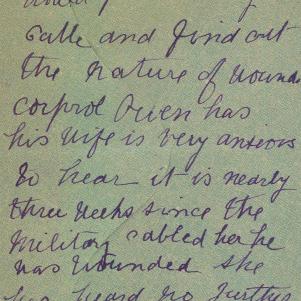 calle and find out
the nature of wound
corprol Owen has
his wife is very anxious
to hear it is nearly
three weeks since the
military cabled her he
was wounded she
has heard no further